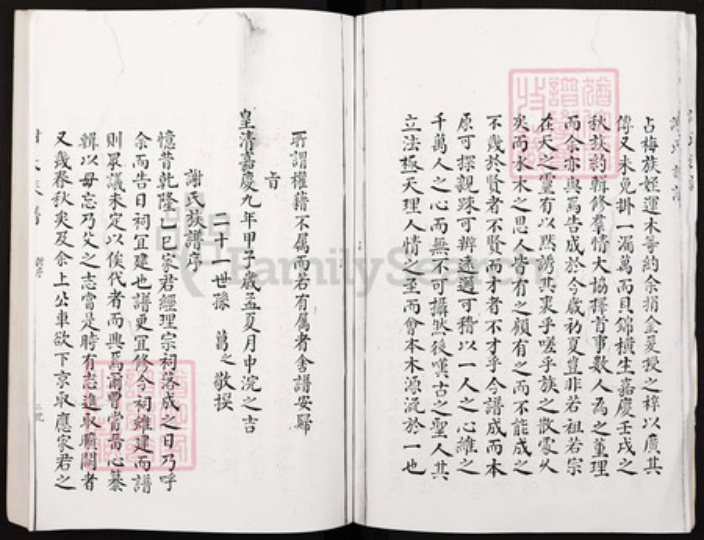 占梅族姪運木等約余捐金叟授之梓以廣其
傳又未免掛一漏萬而貝錦橫生嘉慶壬戌之
秋族約輯修羣情大協擇首事數人為之董理
而余亦與焉告成於今歲初夏豈非若祖若宗
在天之靈有以默誘其衷乎嗟乎族之散處久
矣而水木之思人皆有之顧有之而不能成之
不幾於賢者不賢而才者不才乎今譜成而本
原可探親疎可辨遠邇可稽以一人之心維之
千萬人之心而無不可攝然後嘆古之聖人其
立法極天理人情之至而會本木源流於一也
所謂權籍不属而若有属者舍譜安歸
旹
皇清嘉慶九年甲子歲孟夏月中浣之吉
二十一世孫 萬之敬撰
謝氏族譜序
憶昔乾隆乙巳家君經理宗祠落成之日乃呼
余而告曰祠宜建也譜更宜修今祠雖建而譜
則眾議未定以俟代者而興焉爾曹當啚心纂
輯以毋忘乃父之志當是時有志進取願闕者
又幾春秋矣及余上公車欲下京取應家君之